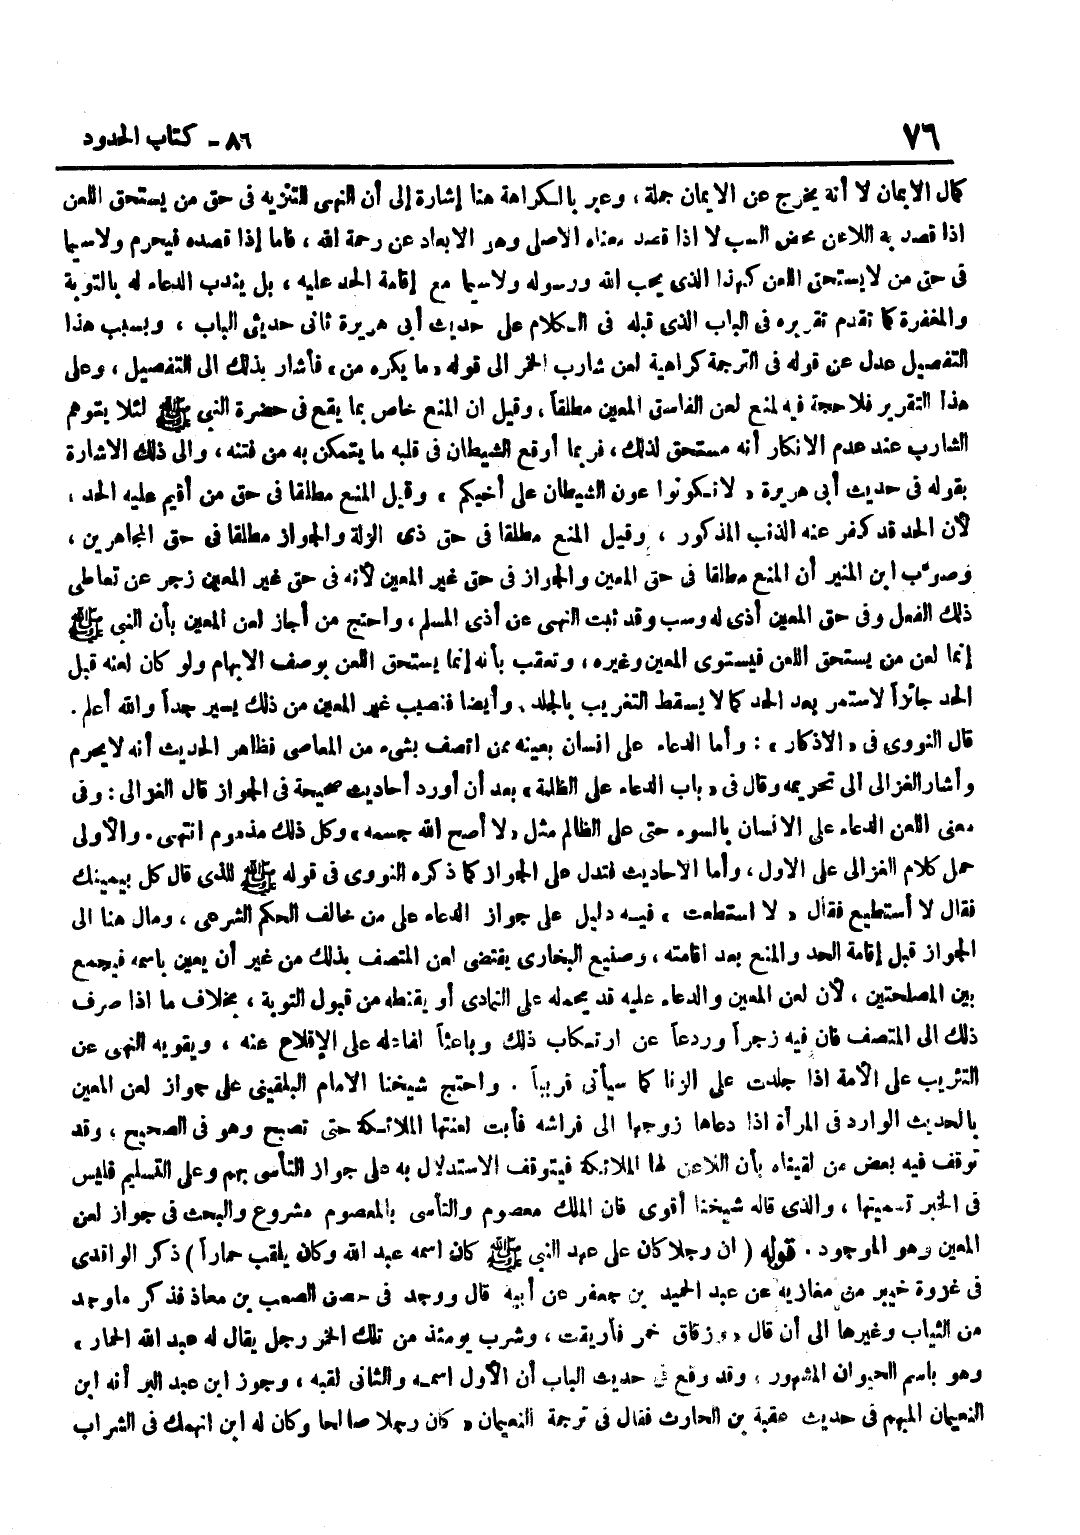 ٧٦
٨٦ - كتاب الحدود
كمال الايمان لا أنه يخرج عن الايمان جملة ، وعبر بالكراهة هنا إشارة إلى أن النهى للتنزيه فى حق من يستحق اللعن
اذا قصد به اللاعن محض السب لا اذا قصد معناه الاصلى وهو الابعاد عن رحمة الله ، فاما إذا قصده فيحرم ولاسيما
فى حق من لا يستحق اللعن كهذا الذى يحب الله ورسوله ولاسيما مع إقامة الحد عليه ، بل يندب الدعاء له بالتوبة
والمغفرة كما تقدم تقريره فى الباب الذى قبله فى الكلام على حديث أبى هريرة ثانى حديثى الباب ، وبسبب هذا
التفصيل عدل عن قوله فى الترجمة كراهية لعن شارب الخمر الى قوله « ما يكره من » فأشار بذلك الى التفصيل ، وعلى
هذا التقرير فلا حجة فيه لمنع لعن الفاسق المعين مطلقاً ، وقيل ان المنع خاص بما يقع فى حضرة النبى ﷺ لئلا يتوهم
الشارب عند عدم الانكار أنه مستحق لذلك ، فربما أوقع الشيطان فى قلبه ما يتمكن به من فتنه ، والى ذلك الاشارة
بقوله فى حديث أبى هريرة « لا تكونوا عون الشيطان على أخيكم » وقيل المنع مطلقا فى حق من أقيم عليه الحد ،
لأن الحد قد كفر عنه الذنب المذكور ، وقيل المنع مطلقا فى حق ذى الزلة والجواز مطلقا فى حق المجاهرين ،
وصوّب ابن المنير أن المنع مطلقا فى حق المعين والجواز فى حق غير المعين لأنه فى حق غير المعين زجر عن تعاطى
ذلك الفعل وفى حق المعين أذى له وسب وقد ثبت النهى عن أذى المسلم ، واحتج من أجاز لعن المعين بأن النبى ﷺ
إنما لعن من يستحق اللعن فيستوى المعين وغيره ، وتعقب بأنه إنما يستحق اللعن بوصف الابهام ولو كان لعنه قبل
الحد جائزاً لاستمر بعد الحد كما لا يسقط التغريب بالجلد . وأيضا فنصيب غير المعين من ذلك يسير جداً والله أعلم .
قال النووى فى « الاذكار » : وأما الدعاء على انسان بعينه ممن اتصف بشىء من المعاصى فظاهر الحديث أنه لا يحرم
وأشار الغزالى الى تحريمه وقال فى « باب الدعاء على الظلمة » بعد أن أورد أحاديث صحيحة فى الجواز قال الغزالى : وفى
معنى اللعن الدعاء على الانسان بالسوء حتى على الظالم مثل « لا أصح الله جسمه » وكل ذلك مذموم انتهى . والأولى
حمل كلام الغزالى على الاول ، وأما الاحاديث فتدل على الجواز كما ذكره النووى فى قوله ﷺ للذى قال كل بيمينك
فقال لا أستطيع فقال « لا استطعت » فيه دليل على جواز الدعاء على من خالف الحكم الشرعى ، ومال هنا الى
الجواز قبل إقامة الحد والمنع بعد اقامته ، وصنيع البخارى يقتضى لعن المتصف بذلك من غير أن يعين باسمه فيجمع
بين المصلحتين ، لأن لعن المعين والدعاء عليه قد يحمله على التمادى أو يقنطه من قبول التوبة ، بخلاف ما اذا صرف
ذلك الى المتصف فان فيه زجراً وردعاً عن ارتكاب ذلك وباعثاً لفاعله على الإقلاع عنه ، ويقويه النهى عن
التثريب على الأمة اذا جلدت على الزنا كما سيأتى قريباً . واحتج شيخنا الامام البلقينى على جواز لعن المعين
بالحديث الوارد فى المرأة اذا دعاها زوجها الى فراشه فأبت لعنتها الملائكة حتى تصبح وهو فى الصحيح ، وقد
توقف فيه بعض من لقيناه بأن اللاعن لها الملائكة فيتوقف الاستدلال به على جواز التأسى بهم وعلى التسليم فليس
فى الخبر تسميتها ، والذى قاله شيخنا أقوى فان الملك معصوم والتأسى بالمعصوم مشروع والبحث فى جواز لعن
المعين وهو الموجود . قوله ( ان رجلا كان على عهد النبى ﷺ كان اسمه عبد الله وكان يلقب حماراً ) ذكر الواقدى
فى غزوة خيبر من مغازيه عن عبد الحميد بن جعفر عن أبيه قال ووجد فى حصن الصعب بن معاذ فذكر ما وجد
من الثياب وغيرها الى أن قال « وزقاق خمر فأريقت ، وشرب يومئذ من تلك الخمر رجل يقال له عبد الله الحمار »
وهو باسم الحيوان المشهور ، وقد وقع فى حديث الباب أن الأول اسمه والثانى لقبه ، وجوز ابن عبد البر أنه ابن
النعيمان المبهم فى حديث عقبة بن الحارث فقال فى ترجمة النعيمان « كان رجلا صالحا وكان له ابن انهمك فى الشراب